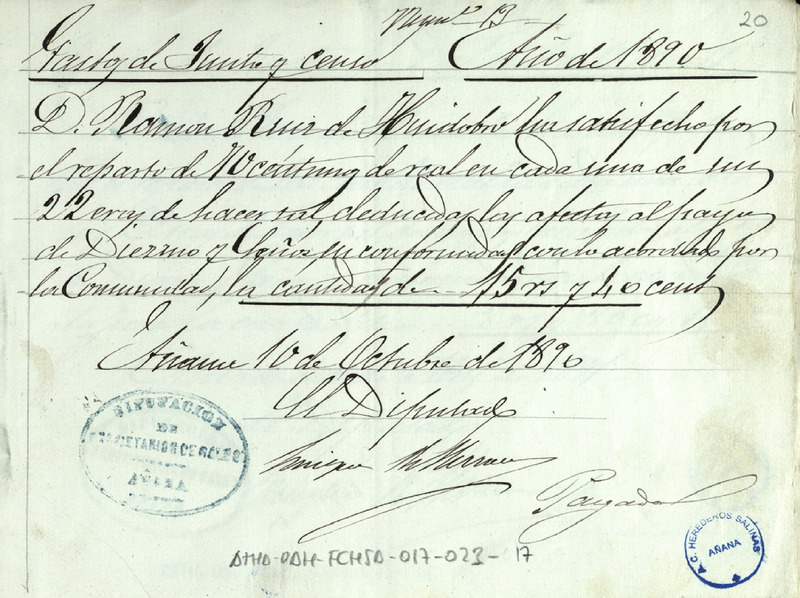 Numº 13
20
Gastos de Junta y censo Año de 1890
D. Ramon Ruiz de Huidobro ha satisfecho por
el reparto de 70 centimos de real en cada una de sus
22 eras de hacer sal, deducidas las afectas al pago
de Diezmo y en conformidad con lo acordado por
la Comunidad, la cantidad de 15 rs y 40 cents
Añana 10 de Octubre de 1890
El Diputado
DIPUTACION
DE
PROPIETARIOS DE SALES
AÑANA
Pagado
A.C. HEREDEROS SALINAS
AÑANA
ATHA-DAH-FCHSA-017-023-17